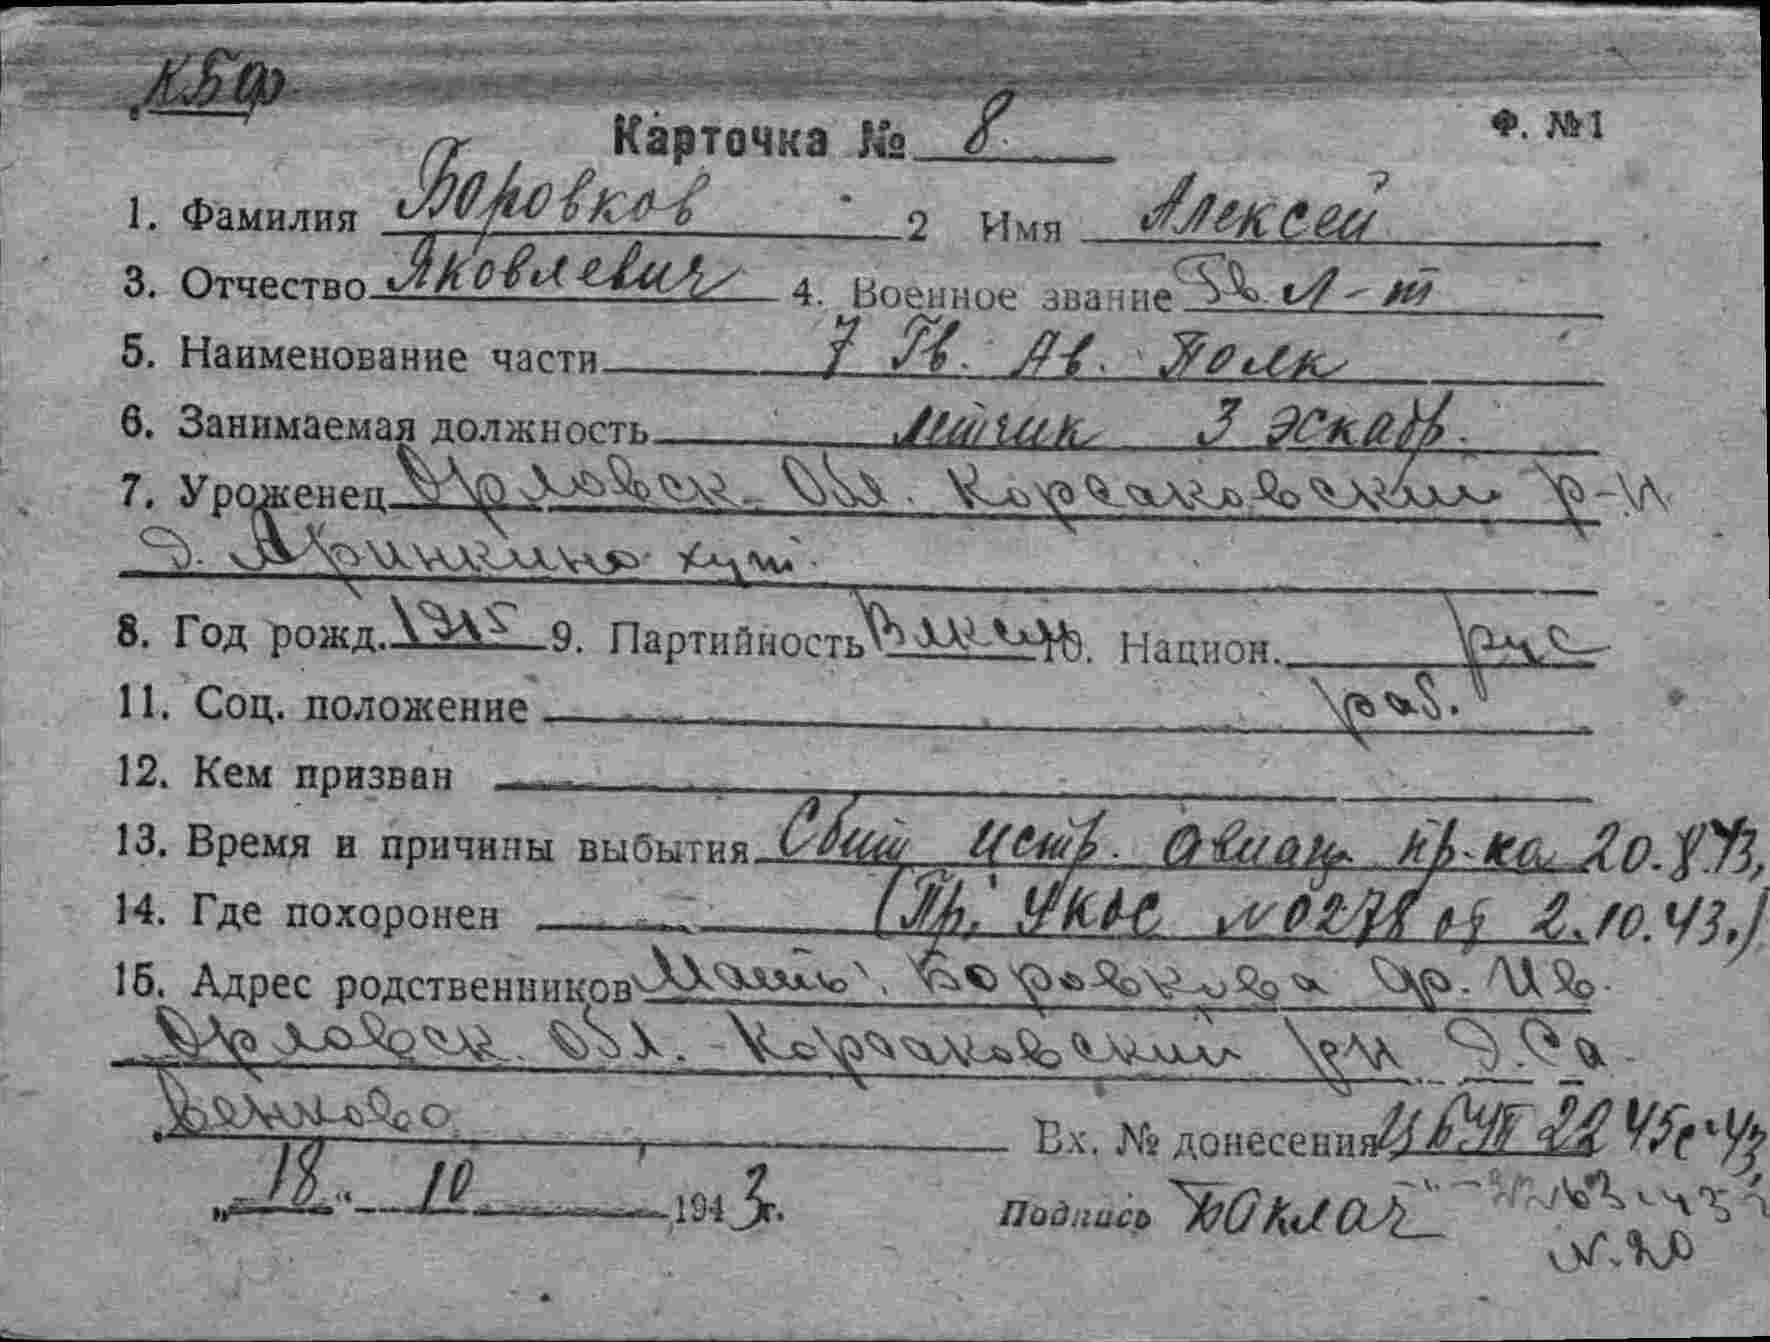 КБФ
Карточка № 8.
Ф. №1
1. Фамилия Боровков 2 Имя Алексей
3. Отчество Яковлевич 4. Военное звание Гв. л-т
5. Наименование части 7 Гв. Ав. Полк
6. Занимаемая должность летчик 3 эскадр.
7. Уроженец Орловск. Обл. Корсаковский р-н
д. Аринкино хут.
8. Год рожд. 1915 9. Партийность 10. Национ. рус
11. Соц. положение раб.
12. Кем призван
13. Время и причины выбытия Сбит истр. авиац. пр-ка 20.8.43,
14. Где похоронен (Пр. УКОС №0278 от 2.10.43.)
15. Адрес родственников Мать: Боровкова Ив.
Орловск. Обл. - Корсаковский рн д. Са-
венково
Вх. № донесения 2245с-43,
„18“ 10 1943г.
Подпись Баклач
N. 20